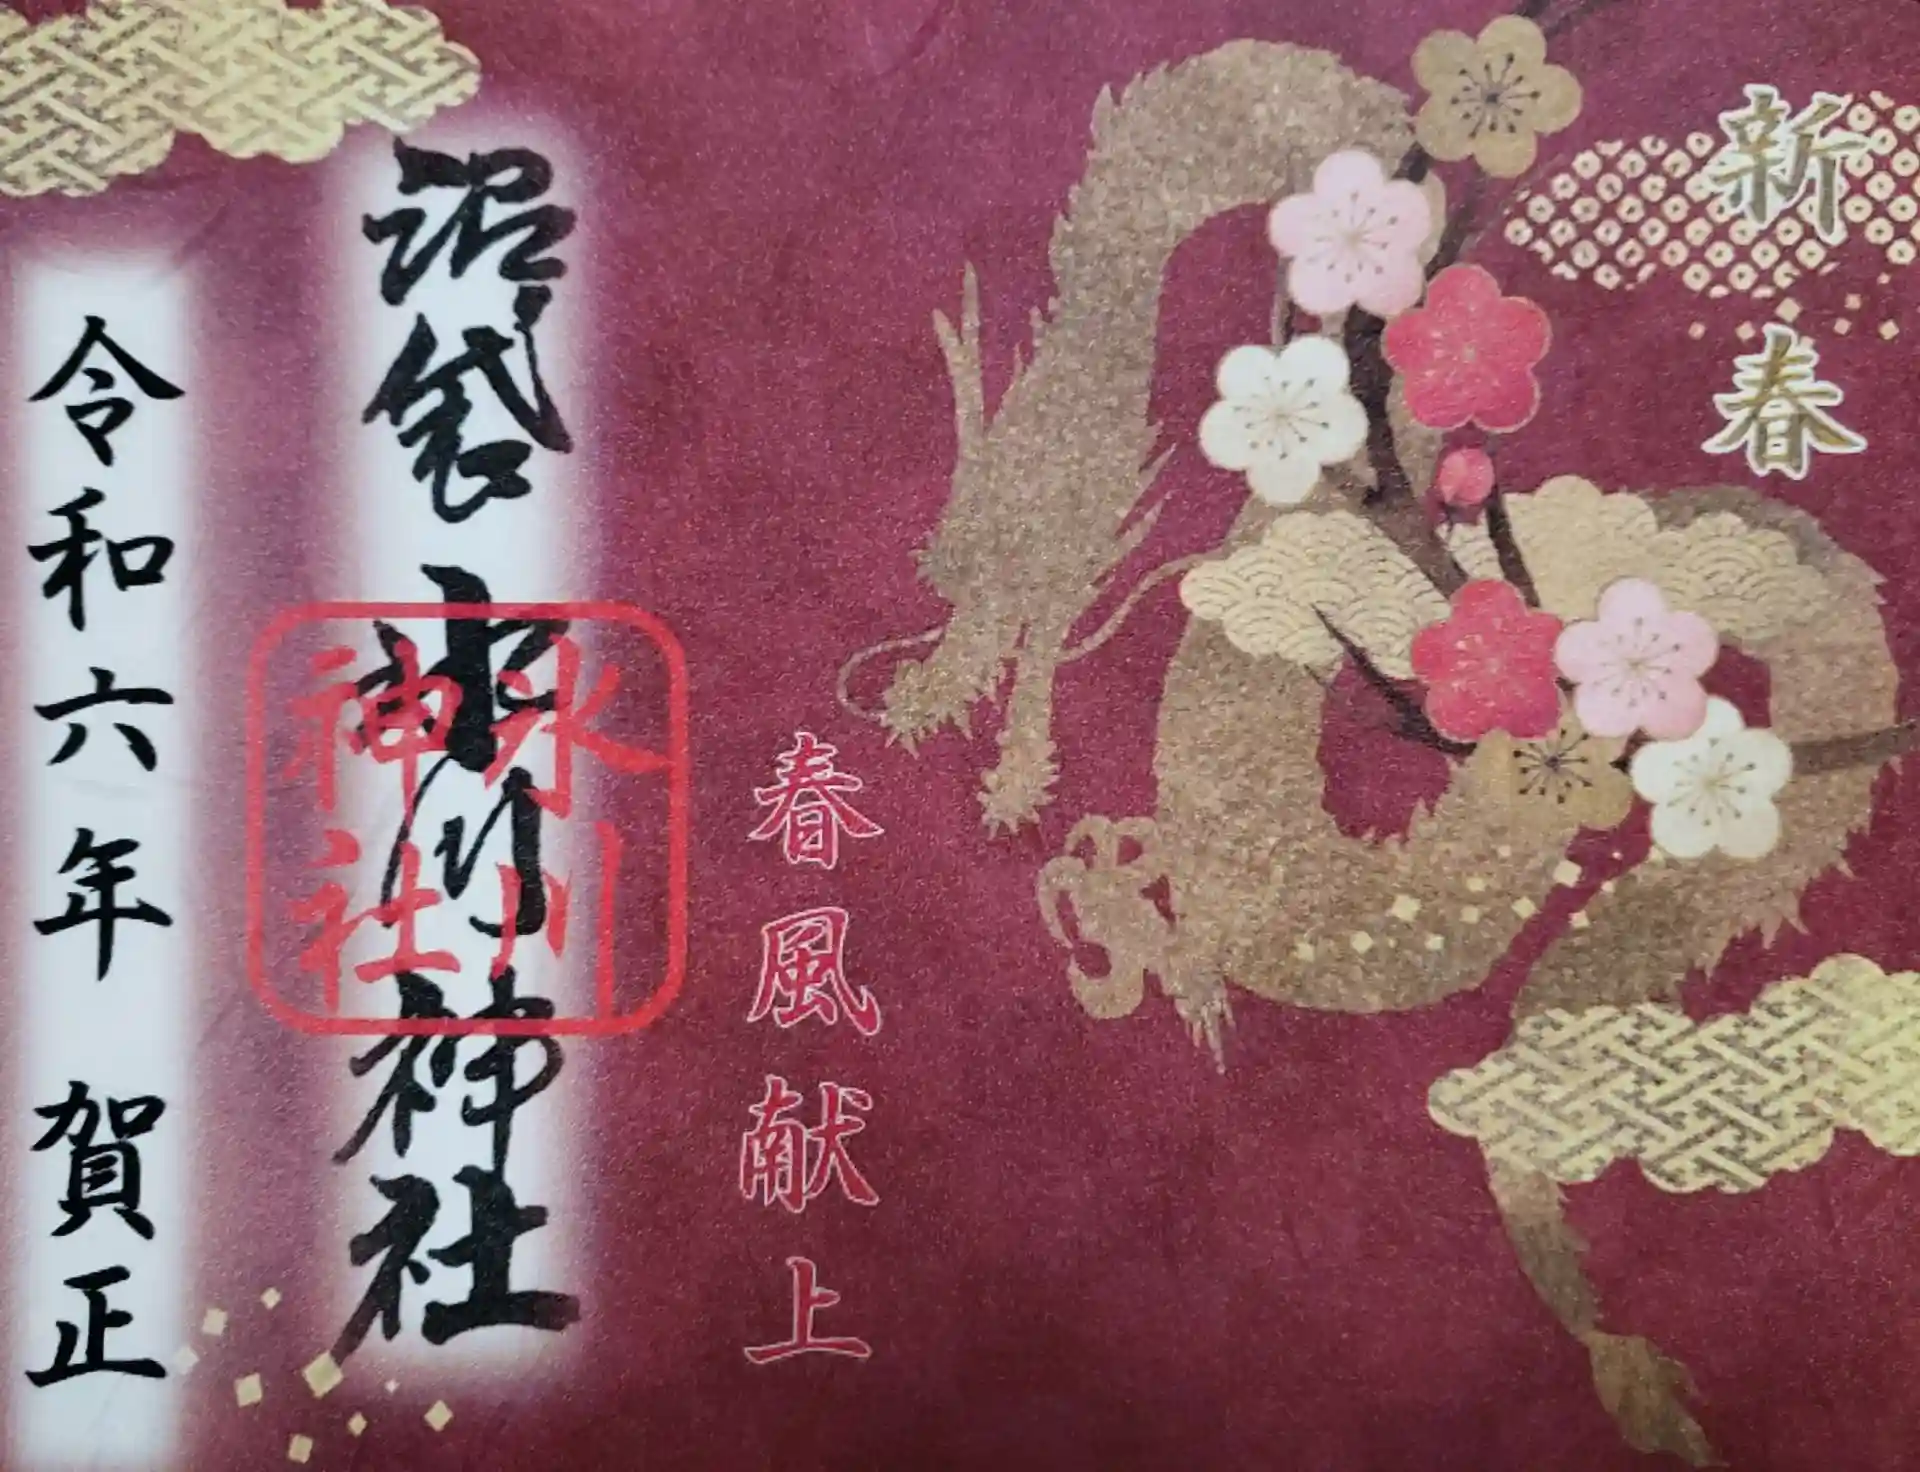 新春
春風献上
沼袋氷川神社
氷川神社
令和六年 賀正